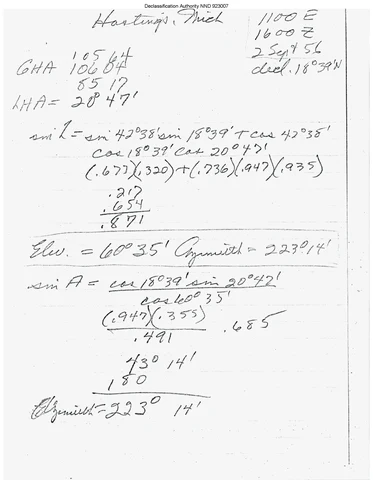 Declassification Authority NND 923007
Hastings, Mich
1100 E
1600 Z
2 Sept 56
decl. 18°39'N
105 64
GHA 106 04
85 17
LHA = 20° 47'
sin h = sin 42°38' sin 18°39' + cos 42°38'
cos 18°39' cos 20°47'
(.677)(.320) + (.736)(.947)(.935)
.217
.654
.871
Elev. = 60°35' Azimuth = 223°14'
sin A = cos 18°39' sin 20°47'
cos 60°35'
(.947)(.355) .685
.491
43° 14'
180
Azimuth = 223° 14'